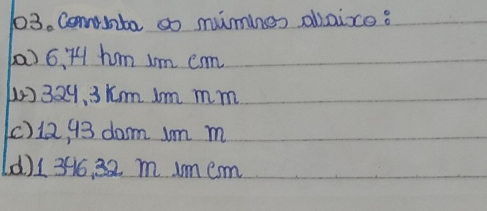 03. Converta os números abaixo:
a) 6,74 hm em cm
b) 324,3 Km em mm
c) 12,43 dam em m
d) 1 346,32 m em cm